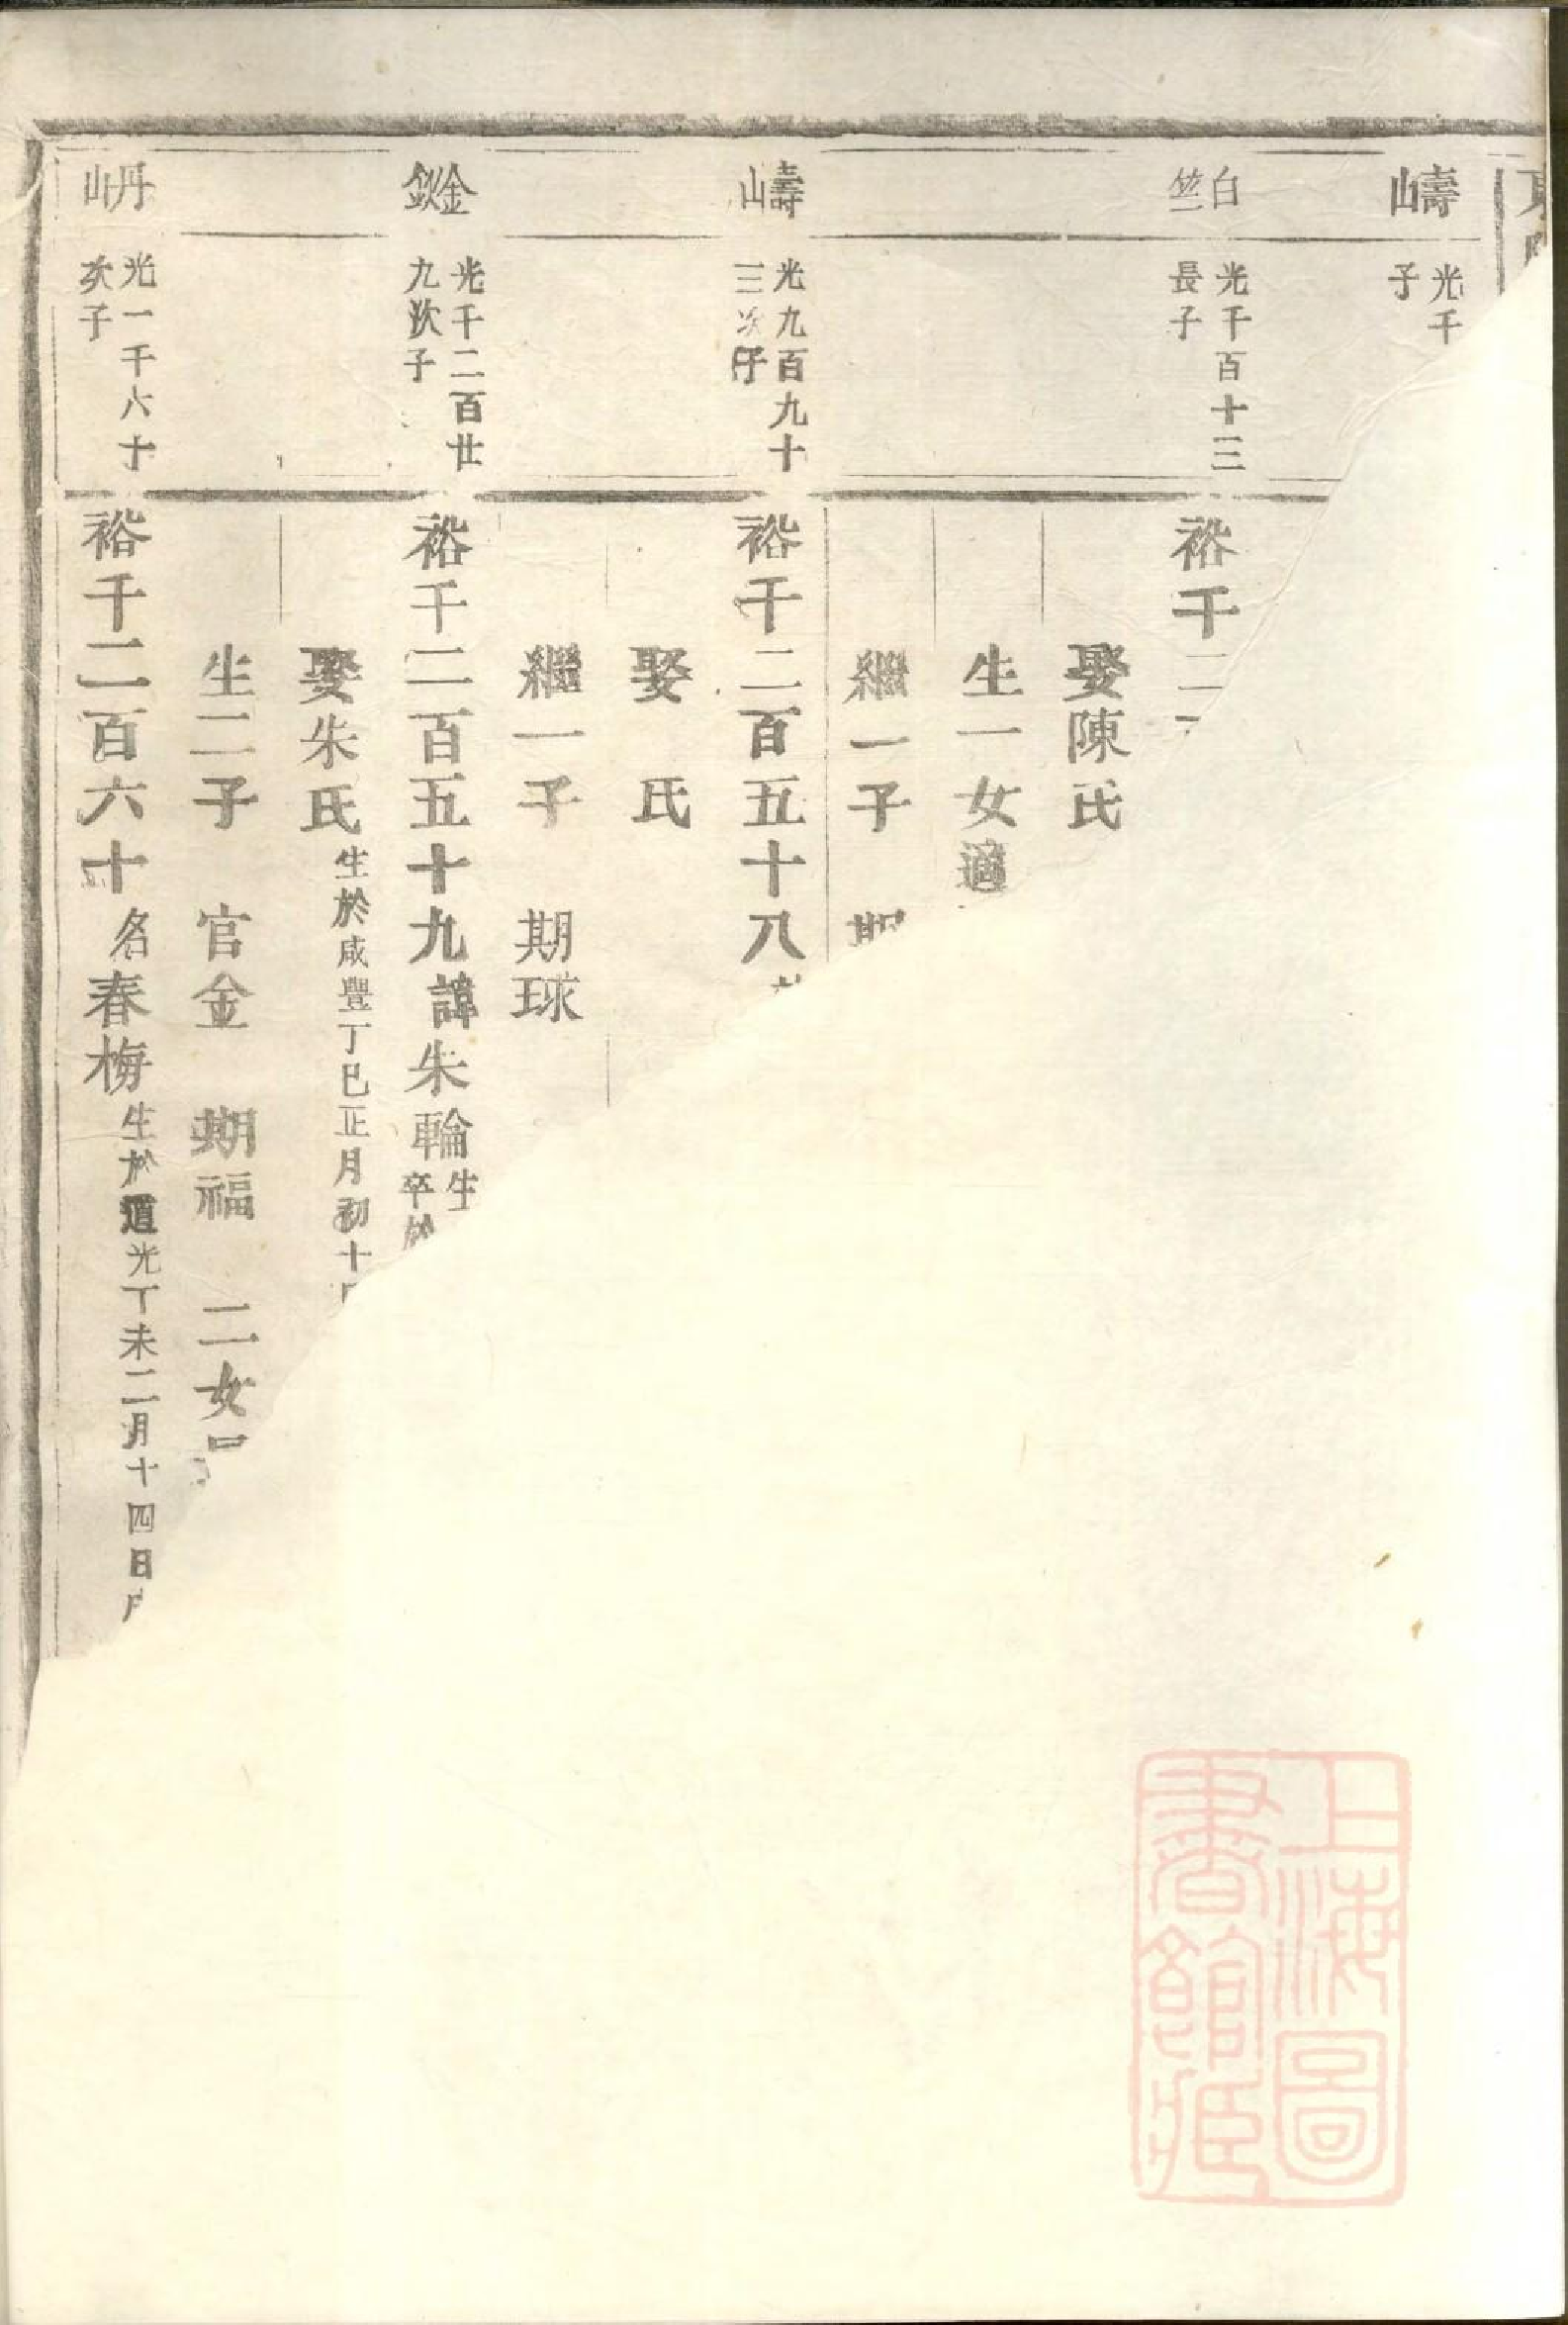 嶹
光千
子
白竺
光千百十三
長子
裕千二
娶陳氏
生一女適
繼一子 期
嶹
光九百九十
三次子
裕千二百五十八
娶 氏
繼一子 期球
金欽
光千二百廿
九次子
裕千二百五十九諱朱輪生
卒於
娶朱氏生於咸豐丁巳正月初十
生二子 官金 期福 二女
丹山
光一千六十
次子
裕千二百六十名春梅生於道光丁未二月十四日
上海圖
書館藏